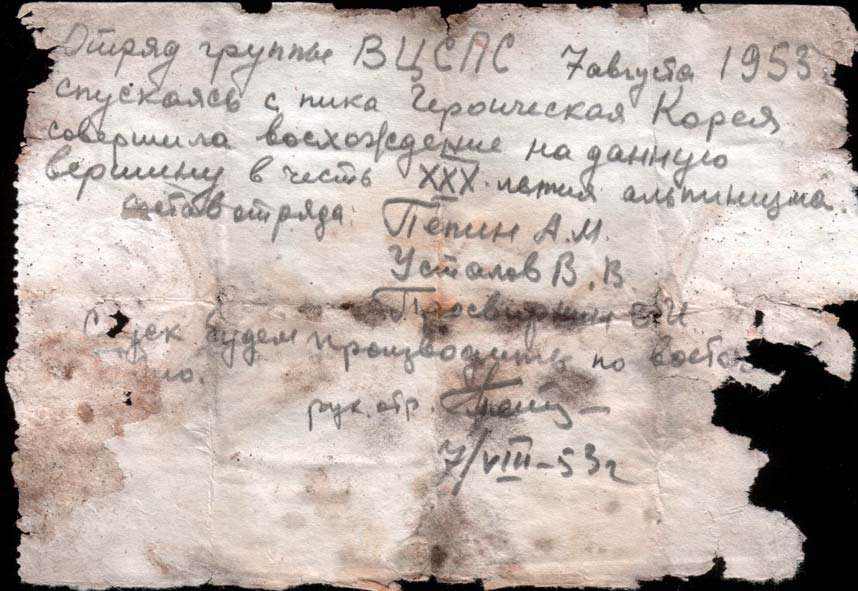 Отряд группы ВЦСПС 7 августа 1953
спускаясь с пика Героическая Корея
совершила восхождение на данную
вершину в честь XXX-летия альпинизма.
состав отряда: Пепин А.М.
Усталов В.В.
Просвирнин Е.И
Спуск будем производить по
рук. отр.
7/VIII-53г